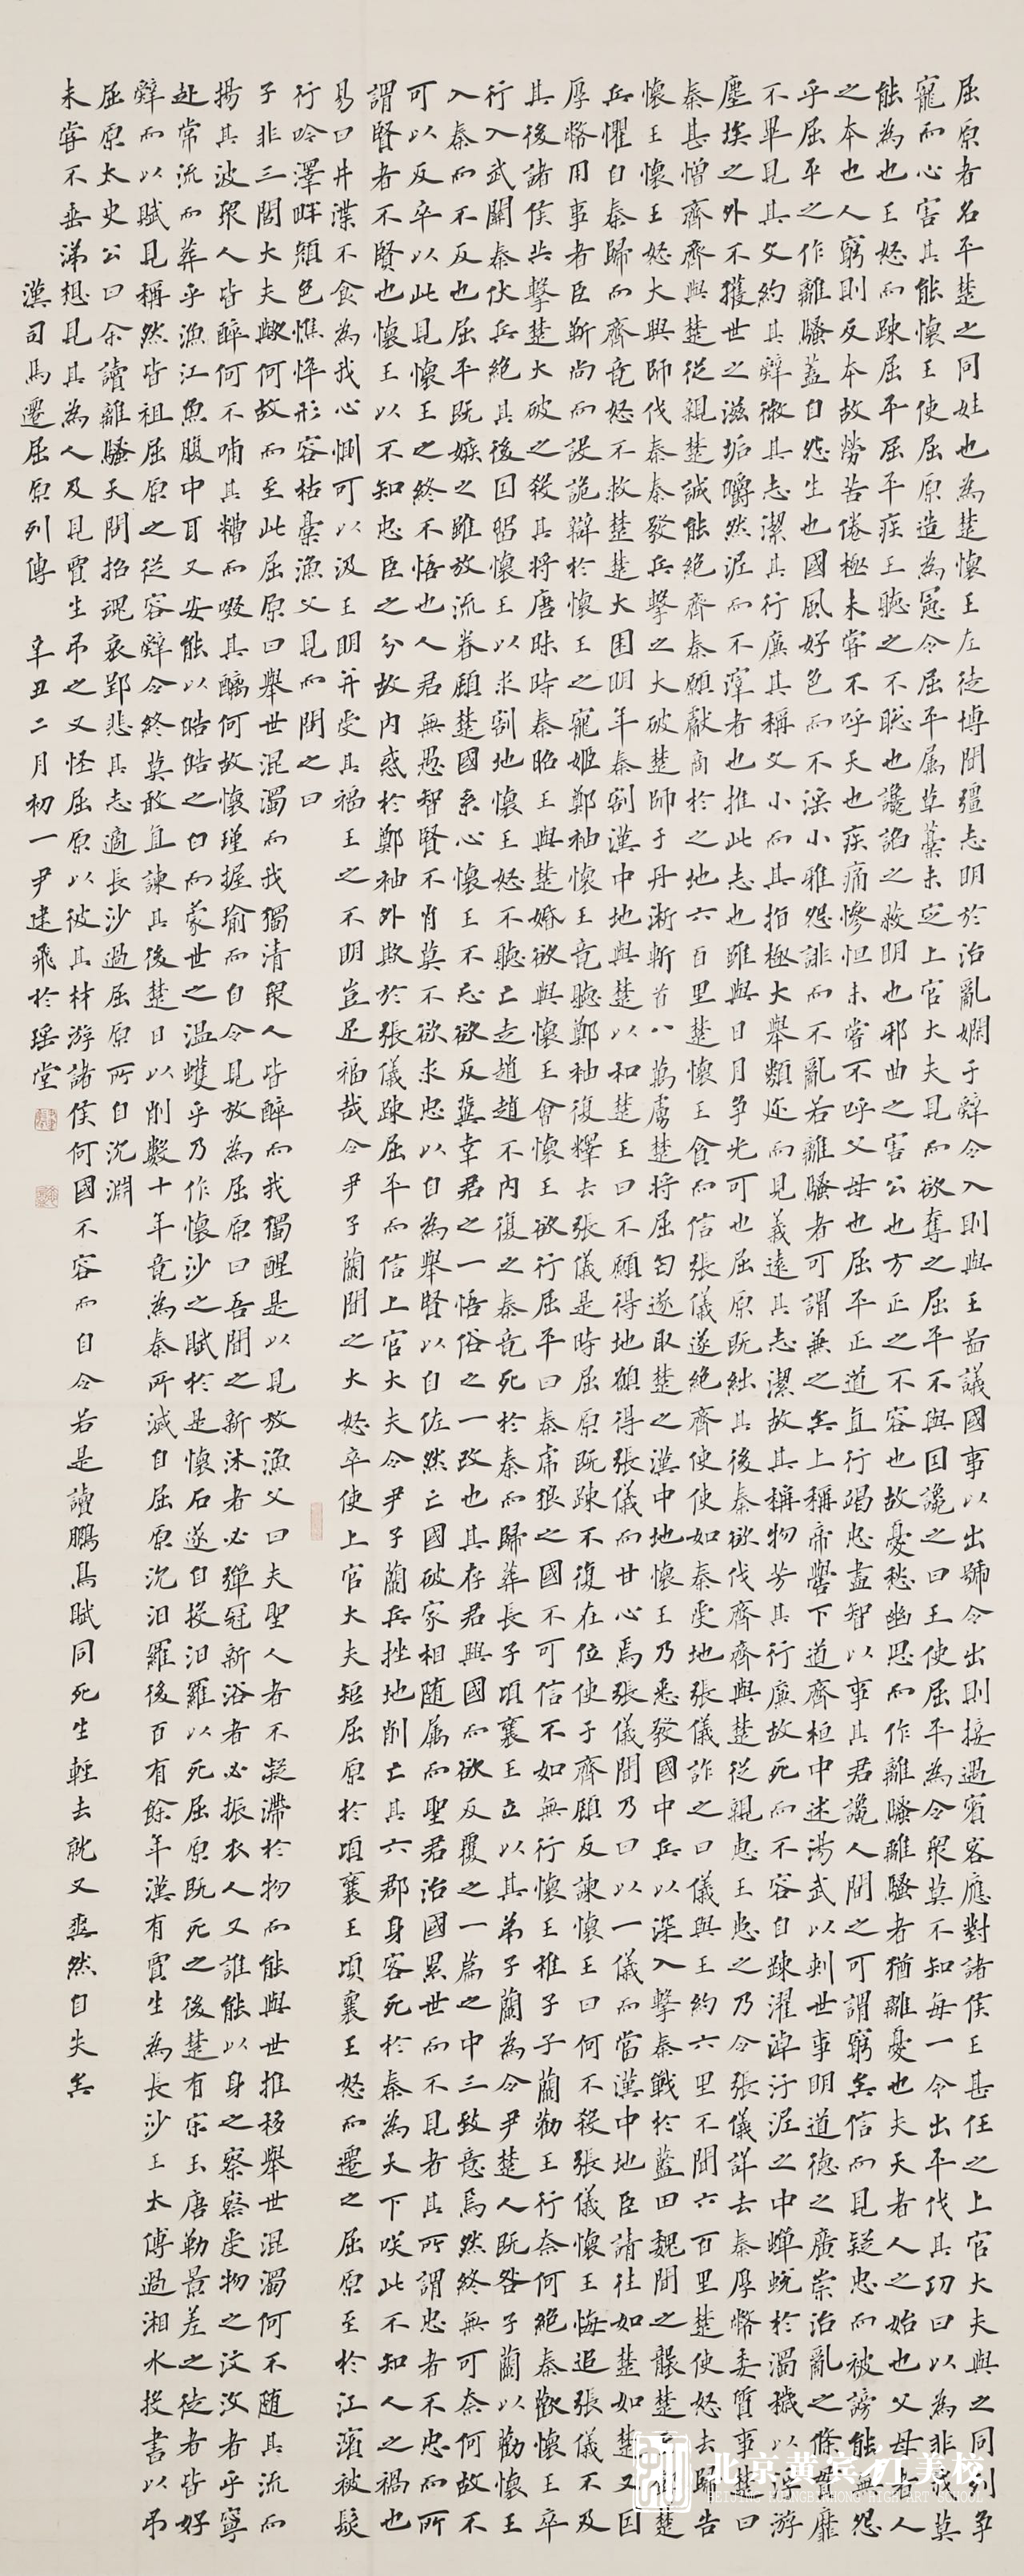 屈原者名平楚之同姓也為楚懷王左徒博聞彊志明於治亂嫻于辭令入則與王啚議國事以出號令出則接遇賓客應對諸侯王甚任之上官大夫與之同列爭
寵而心害其能懷王使屈原造為憲令屈平属草藁未定上官大夫見而欲奪之屈平不與因讒之曰王使屈平為令衆莫不知每一令出平伐其功曰以為非我莫
能為也王怒而疎屈平屈平疾王聽之不聡也讒諂之蔽明也邪曲之害公也方正之不容也故憂愁幽思而作離騷離騷者猶離憂也夫天者人之始也父母者人
之本也人窮則反本故勞苦倦極未嘗不呼天也疾痛慘怛未嘗不呼父母也屈平正道直行竭忠盡智以事其君讒人間之可謂窮矣信而見疑忠而被謗能無怨
乎屈平之作離騷蓋自怨生也國風好色而不淫小雅怨誹而不亂若離騷者可謂兼之矣上稱帝嚳下道齊桓中述湯武以刺世事明道德之廣崇治亂之條貫靡
不畢見其文約其辭微其志潔其行廉其稱文小而其指極大舉類迩而見義遠其志潔故其稱物芳其行廉故死而不容自疎濯淖汙泥之中蟬蛻於濁穢以浮游
塵埃之外不獲世之滋垢皭然泥而不滓者也推此志也雖與日月争光可也屈原既絀其後秦欲伐齊齊與楚從親惠王患之乃令張儀詳去秦厚幣委質事楚曰
秦甚憎齊齊與楚從親楚誠能絶齊秦願獻商於之地六百里楚懷王貪而信張儀遂絶齊使使如秦受地張儀詐之曰儀與王約六里不聞六百里楚使怒去歸告
懷王懷王怒大興師伐秦秦發兵擊之大破楚師于丹淅斬首八萬虜楚將屈匄遂取楚之漢中地懷王乃悉發國中兵以深入擊秦戰於藍田魏聞之襲楚至鄧楚
兵懼自秦歸而齊竟怒不救楚楚大困明年秦割漢中地與楚以和楚王曰不願得地願得張儀而甘心焉張儀聞乃曰以一儀而當漢中地臣請往如楚如楚又因
厚幣用事者臣靳尚而設詭辯於懷王之寵姬鄭袖懷王竟聽鄭袖復釋去張儀是時屈原既疎不復在位使于齊顧反諫懷王曰何不殺張儀懷王悔追張儀不及
其後諸侯共擊楚大破之殺其將唐眜時秦昭王與楚婚欲與懷王會懷王欲行屈平曰秦虎狼之國不可信不如無行懷王稚子子蘭勸王行奈何絶秦歡懷王卒
行入武關秦伏兵絶其後因留懷王以求割地懷王怒不聽亡走趙趙不內復之秦竟死於秦而歸葬長子頃襄王立以其弟子蘭為令尹楚人既咎子蘭以勸懷王
入秦而不反也屈平既嫉之雖放流眷顧楚國系心懷王不忘欲反冀幸君之一悟俗之一改也其存君興國而欲反覆之一篇之中三致意焉然終無可奈何故不
可以反卒以此見懷王之終不悟也人君無愚智賢不肖莫不欲求忠以自為舉賢以自佐然亡國破家相随属而聖君治國累世而不見者其所謂忠者不忠而所
謂賢者不賢也懷王以不知忠臣之分故內惑於鄭袖外欺於張儀疎屈平而信上官大夫令尹子蘭兵挫地削亡其六郡身客死於秦為天下咲此不知人之禍也
易曰井渫不食為我心惻可以汲王明并受其福王之不明豈足福哉令尹子蘭聞之大怒卒使上官大夫短屈原於頃襄王頃襄王怒而遷之屈原至於江濱被髮
行吟澤畔顏色憔悴形容枯槀漁父見而問之曰
子非三閭大夫歟何故而至此屈原曰舉世混濁而我獨清衆人皆醉而我獨醒是以見放漁父曰夫聖人者不凝滯於物而能與世推移舉世混濁何不随其流而
揚其波衆人皆醉何不哺其糟而啜其醨何故懷瑾握瑜而自令見放為屈原曰吾聞之新沐者必彈冠新浴者必振衣人又誰能以身之察察受物之汶汶者乎寧
赴常流而葬乎漁江魚腹中耳又安能以皓皓之白而蒙世之温蠖乎乃作懷沙之賦於是懷石遂自投汨羅以死屈原既死之後楚有宋玉唐勒景差之徒者皆好
辭而以賦見稱然皆祖屈原之從容辭令終莫敢直諫其後楚日以削數十年竟為秦所滅自屈原沉汨羅後百有餘年漢有賈生為長沙王太傅過湘水投書以弔
屈原太史公曰余讀離騷天問招魂哀郢悲其志適長沙過屈原所自沉淵
未嘗不垂涕想見其為人及見賈生吊之又怪屈原以彼其材游諸侯何國不容而自令若是讀鵬鳥賦同死生輕去就又爽然自失矣
漢司馬遷屈原列傳 辛丑二月初一尹建飛於瑶堂
北京黄宾虹美校
BEIJING HUANGBINHONG HIGH ART SCHOOL